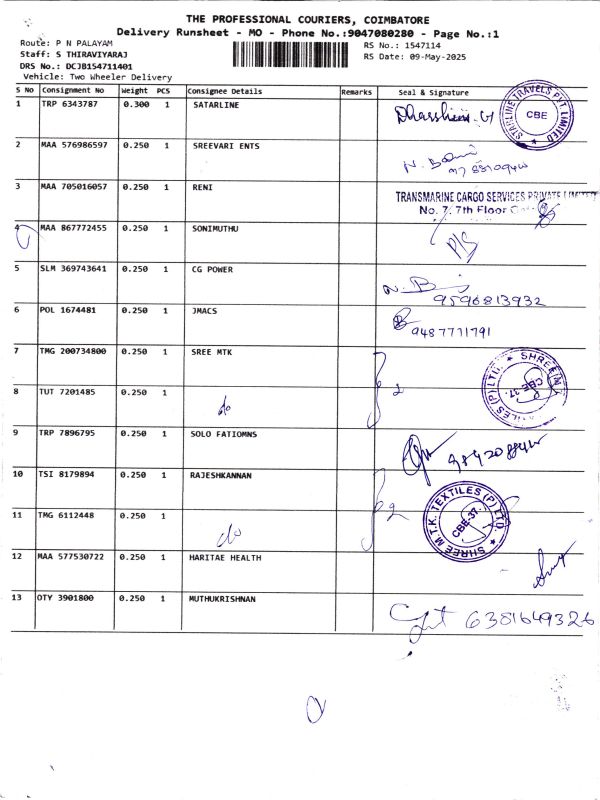 THE PROFESSIONAL COURIERS, COIMBATORE
Delivery Runsheet - MO - Phone No.:9047080280 - Page No.:1
Route: P N PALAYAM
RS No.: 1547114
Staff: S THIRAVIYARAJ
RS Date: 09-May-2025
DRS No.: DCJB154711401
Vehicle: Two Wheeler Delivery
S No Consignment No Weight PCS Consignee Details Remarks Seal & Signature
1 TRP 6343787 0.300 1 SATARLINE
STARLINE TRAVELS PVT. LIMITED CBE
2 MAA 576986597 0.250 1 SREEVARI ENTS
3 MAA 705016057 0.250 1 RENI
TRANSMARINE CARGO SERVICES PRIVATE LIMITED
No. 7, 7th Floor
4 MAA 867772455 0.250 1 SONIMUTHU
5 SLM 369743641 0.250 1 CG POWER
9596813932
6 POL 1674481 0.250 1 JMACS
9487771791
7 TMG 200734800 0.250 1 SREE MTK
CBE-37.
8 TUT 7201485 0.250 1 do 2
9 TRP 7896795 0.250 1 SOLO FATIOMNS
10 TSI 8179894 0.250 1 RAJESHKANNAN
SHREE M.T.K. TEXTILES (P) LTD. CBE-37.
11 TMG 6112448 0.250 1 do 2
12 MAA 577530722 0.250 1 HARITAE HEALTH
13 OTY 3901800 0.250 1 MUTHUKRISHNAN
6381649326